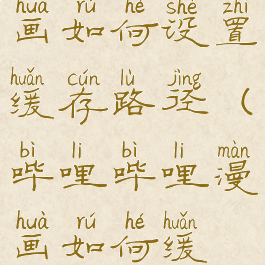 huà rú hé shè zhì
画如何设置
huǎn cún lù jìng
缓存路径(
bì li bì li màn
哔哩哔哩漫
huà rú hé huǎn
画如何缓